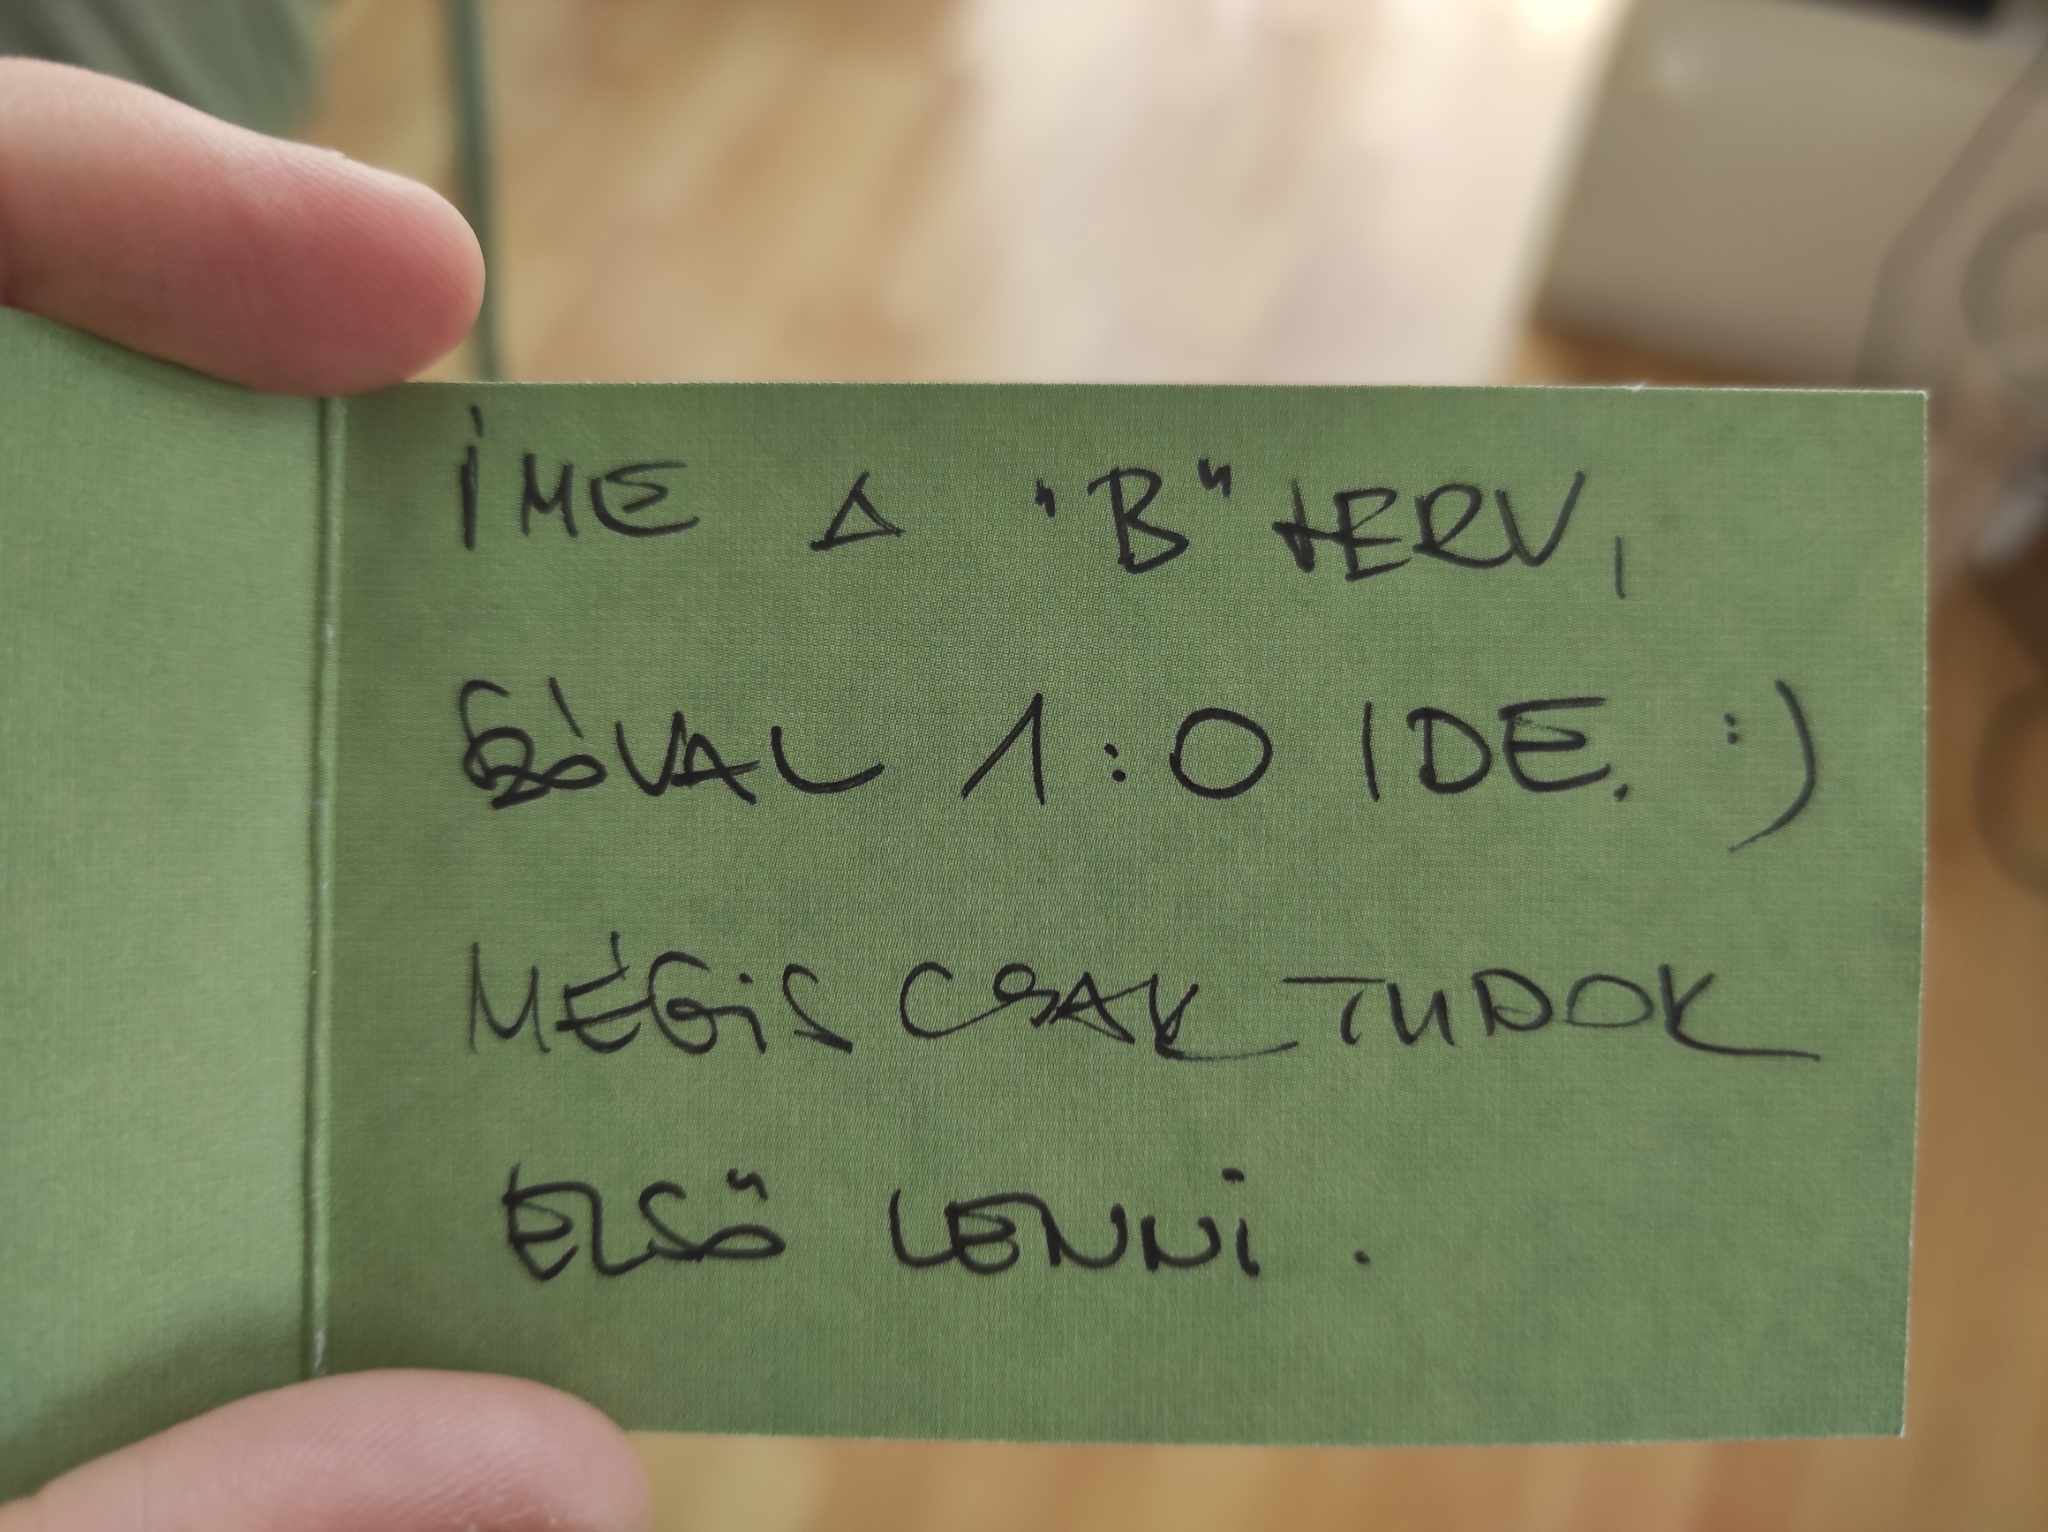 ÍME A "B" TERV,
SZÓVAL 1:0 IDE. :)
MÉGIS CSAK TUDOK
ELSŐ LENNI.